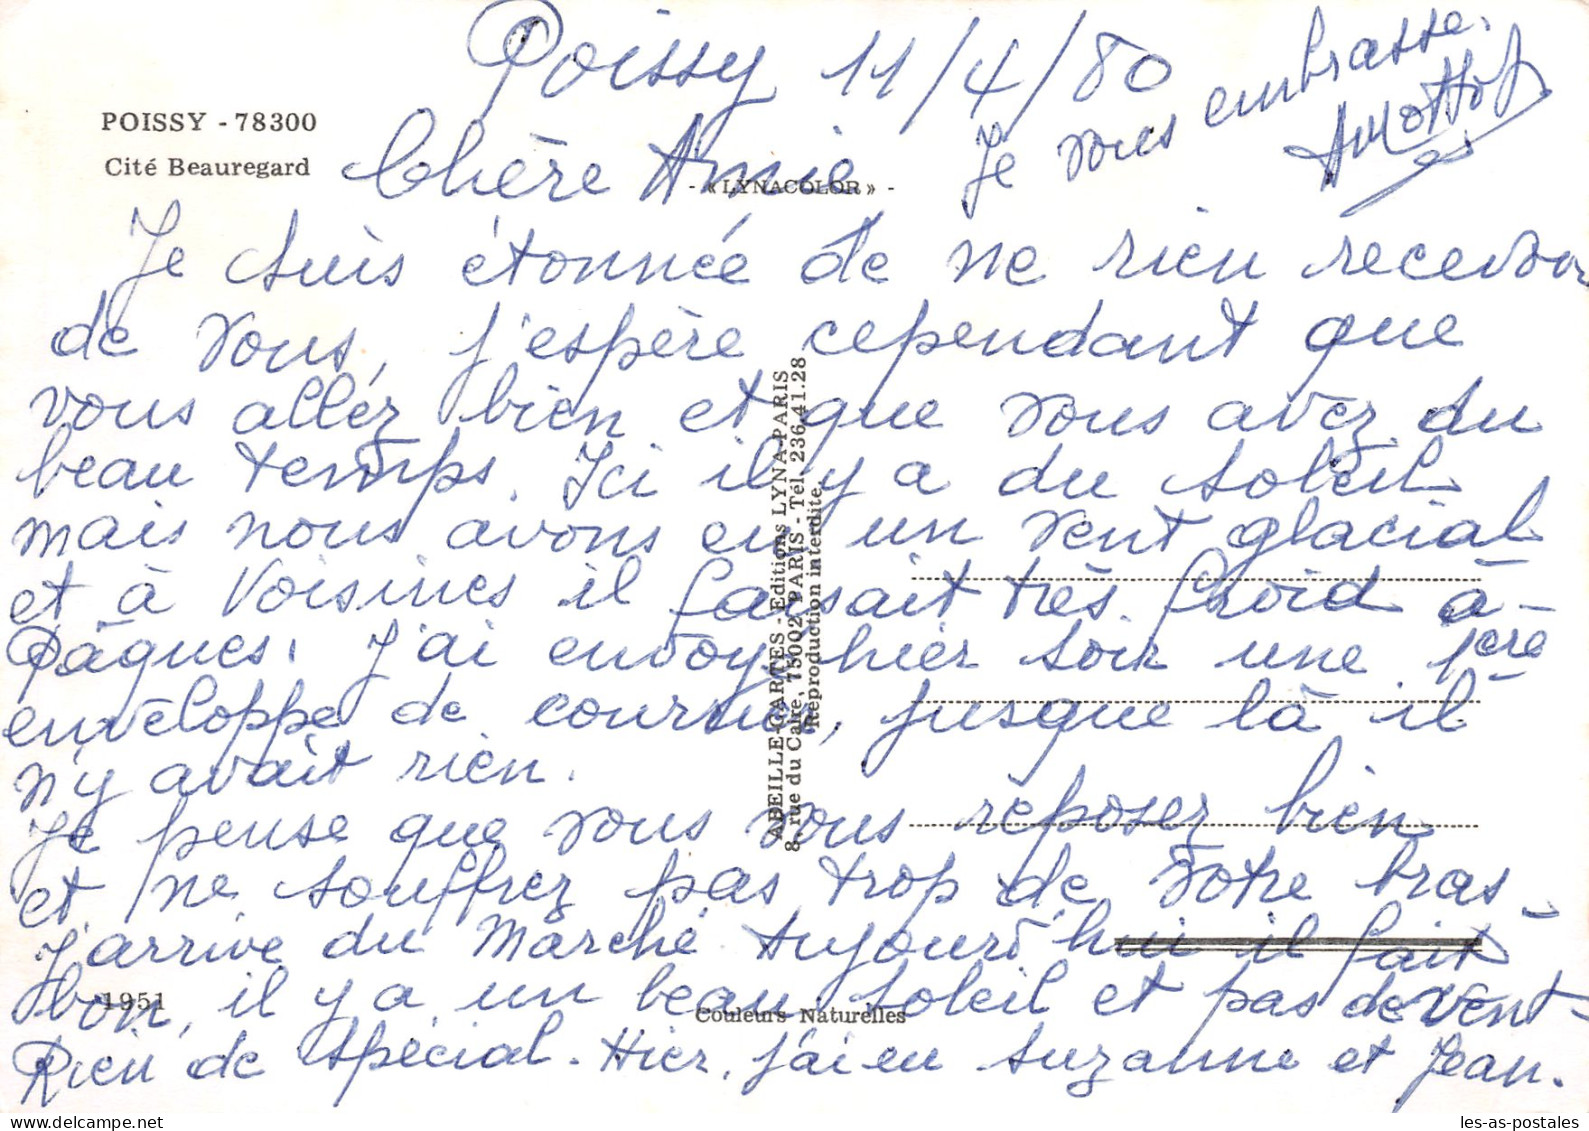 Poissy 11/4/80
POISSY - 78300
Cité Beauregard
Chère Amie
- « LYNACOLOR » -
Je suis étonnée de ne rien recevoir
de vous, j'espère cependant que
vous allez bien et que vous avez du
beau temps. Ici il y a du soleil
mais nous avons eu un vent glacial
et à Voisines il faisait très froid à
Pâques. J'ai envoyé hier soir une 1ère
enveloppe de courrier, jusque là il
n'y avait rien.
Je pense que vous vous reposez bien
et ne souffrez pas trop de votre bras.
J'arrive du Marché Aujourd'hui il fait
bon, il y a un beau soleil et pas de vent -
Rien de spécial - Hier, j'ai eu Suzanne et Jean.
Je vous embrasse.
ABEILLE-CARTES - Editions LYNA-PARIS
8, rue du Caire, 75002 PARIS - Tél. 236.41.28
Reproduction interdite.
1951
Couleurs Naturelles
les-as-postales